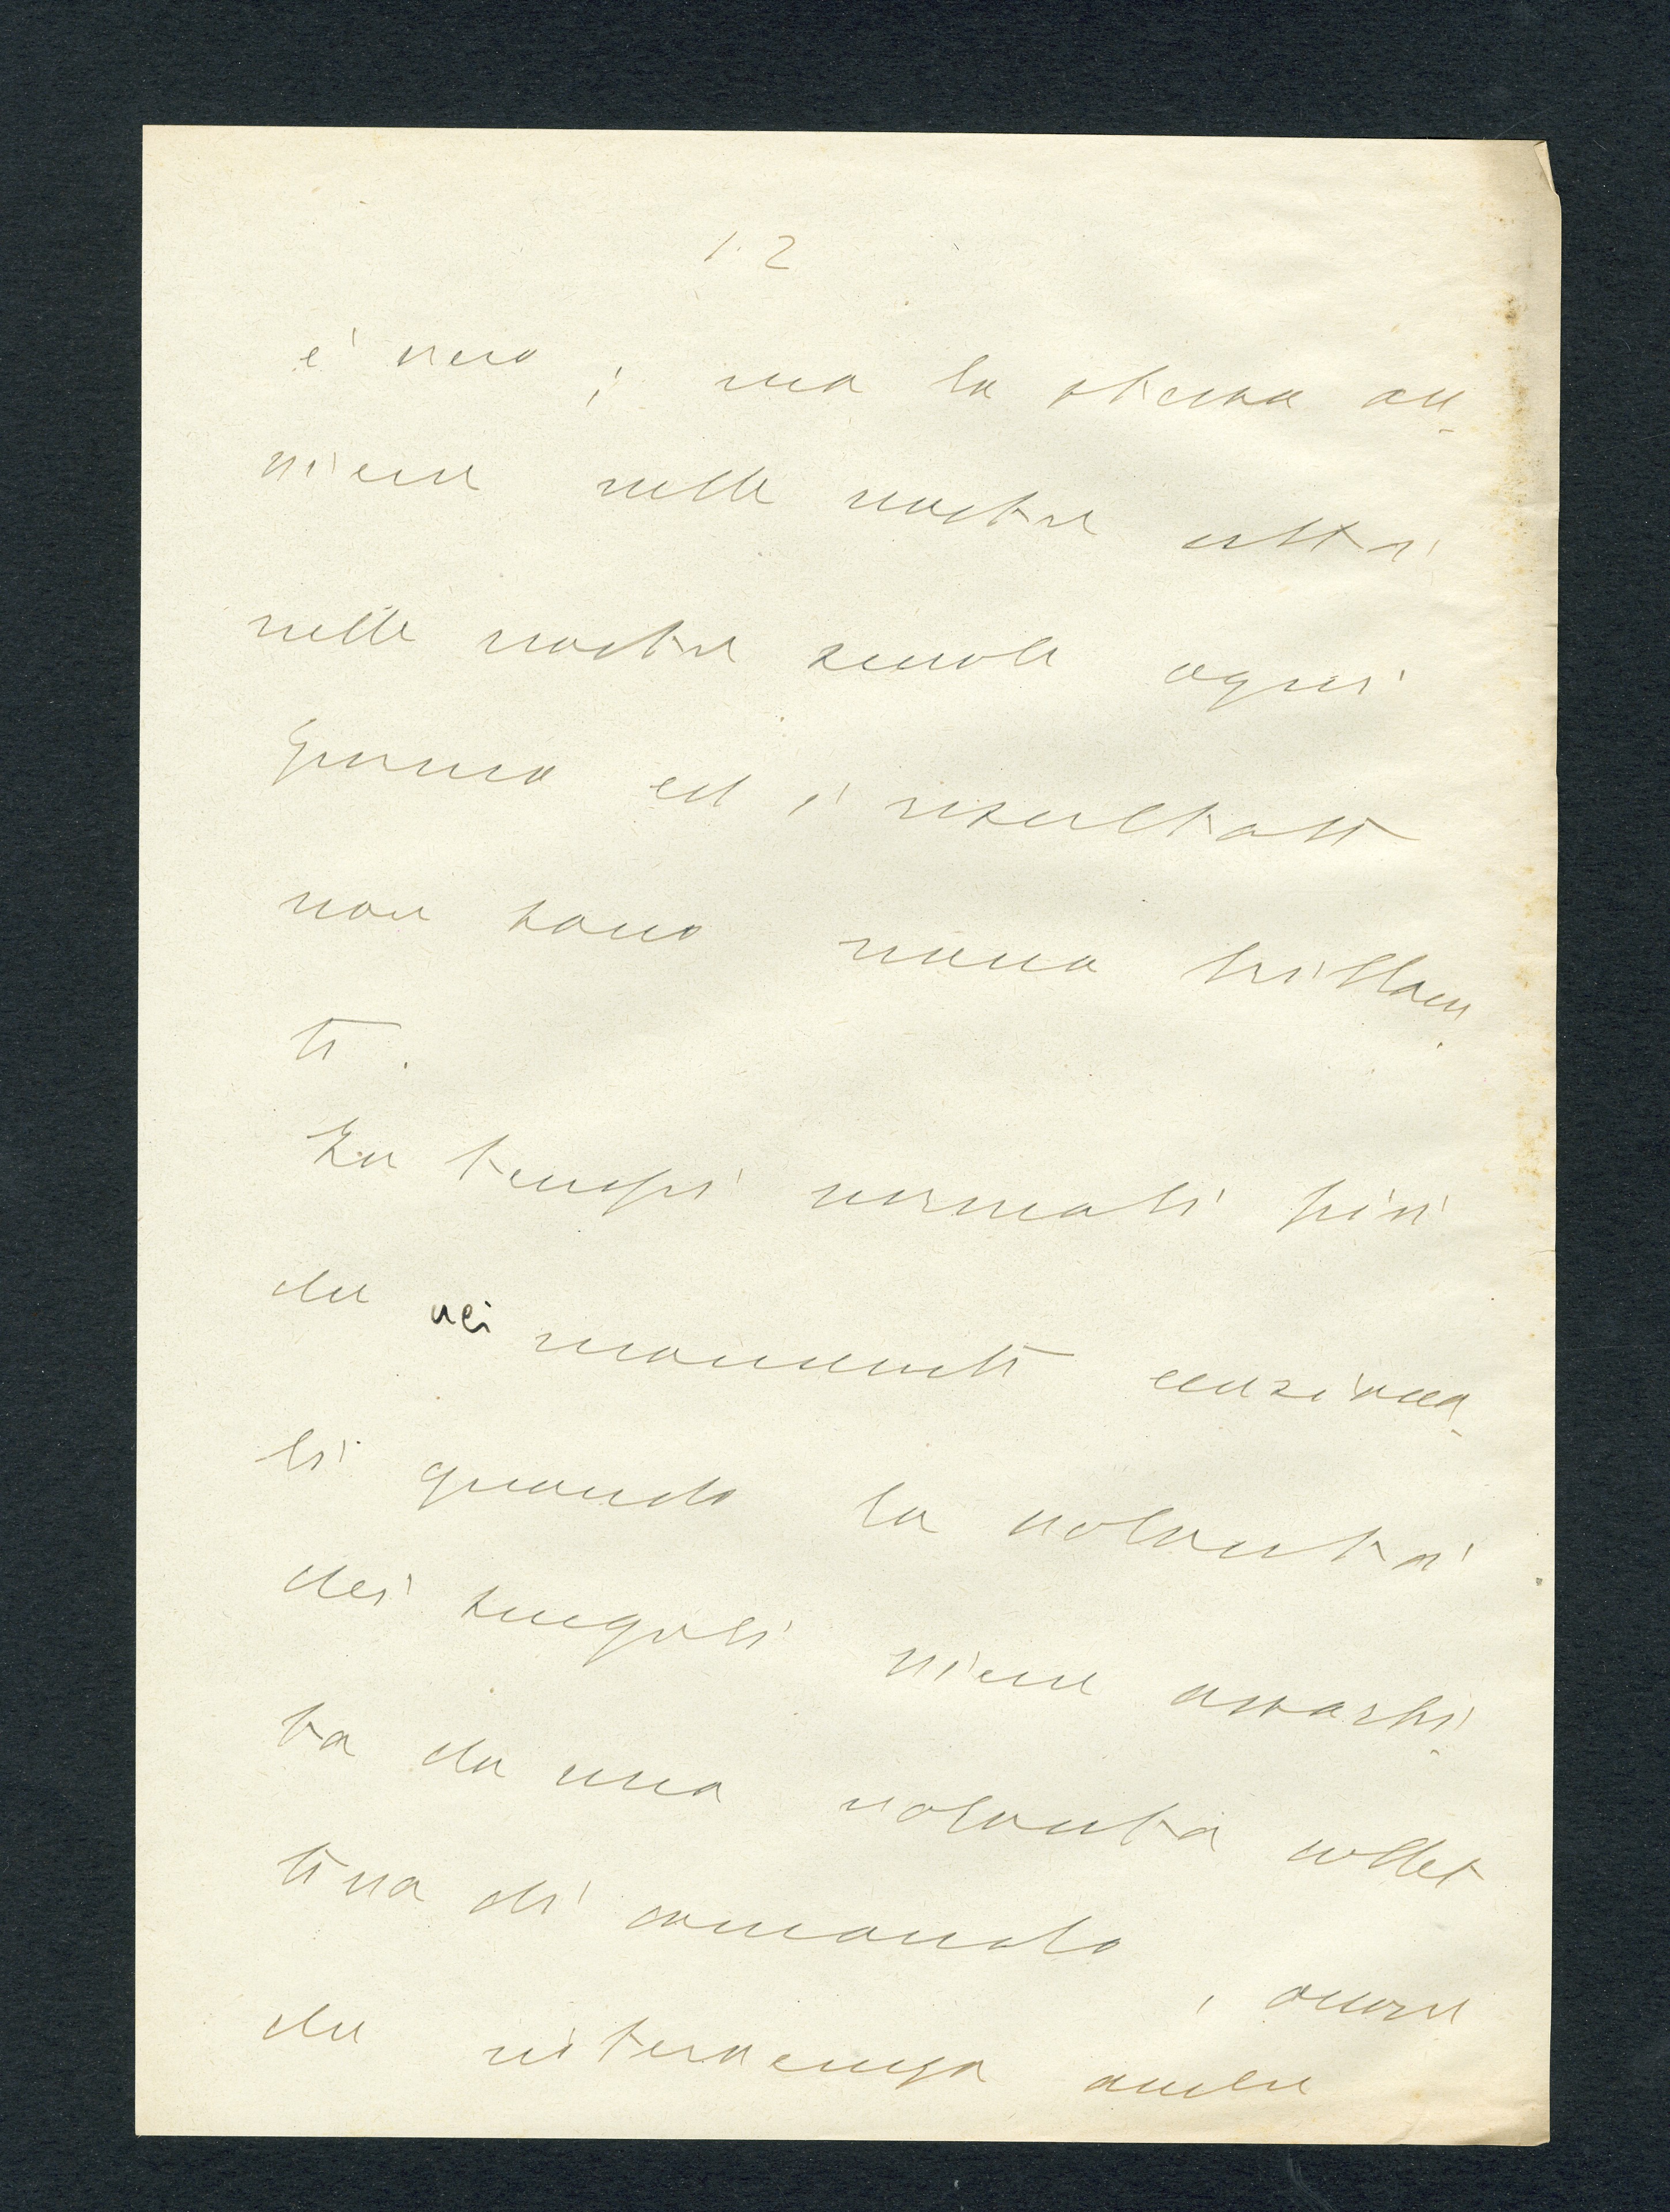 12
è vero; ma lo stesso av-
viene nelle nostre città
nelle nostre scuole ogni
giorno ed i risultati
non sono meno brillan-
ti.
In tempi normali più
che nei momenti ecceziona-
li quando la volontà
dei singoli viene assorbi-
ta da una volontà collet
tiva di comando, occorre
che intervenga anche